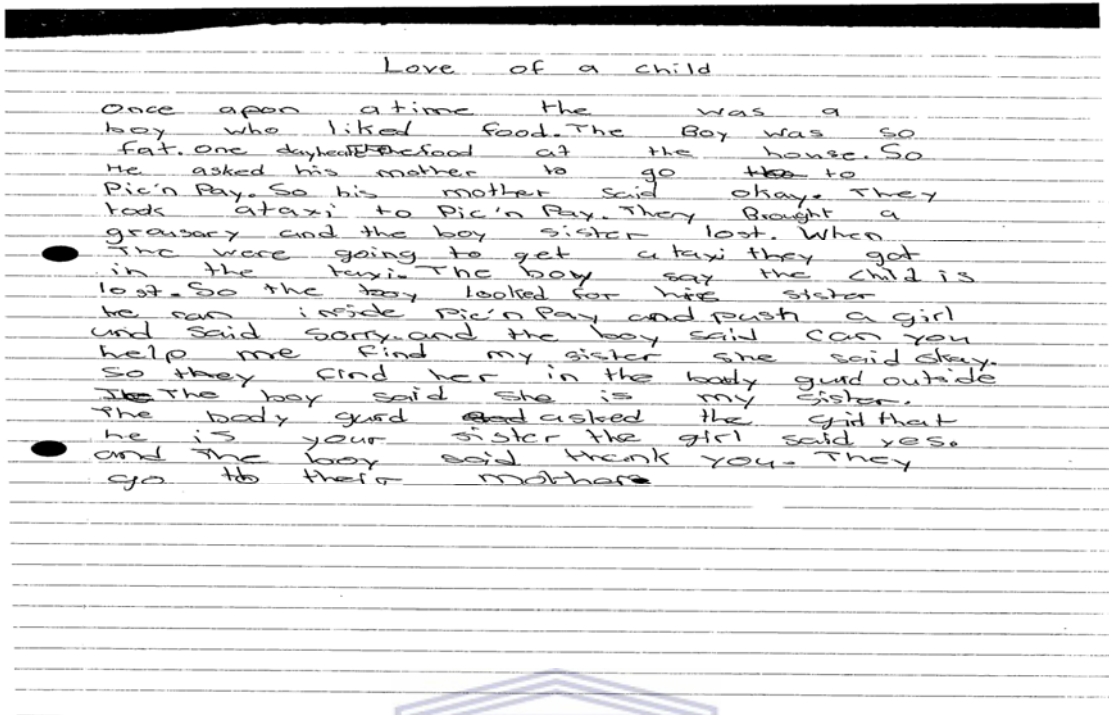 Love of a child
Once apon atime the was a
boy who liked food. The Boy was so
fat. One day he the food at the house. So
He asked his mother to go to
Pic'n Pay. So his mother said okay. They
took ataxi to Pic'n Pay. They Brought a
grousary and the boy sister lost. When
The were going to get a taxi they got
in the taxi. The boy say the child is
lost. So the boy looked for his sister
he ran inside Pic'n Pay and push a girl
and said sorry. and the boy said can you
help me find my sister she said okay.
So they find her in the body gurd outside
The boy said she is my sister.
The body gurd asked the girl that
he is your sister the girl said yes.
and The boy said thank you. They
go to their mother